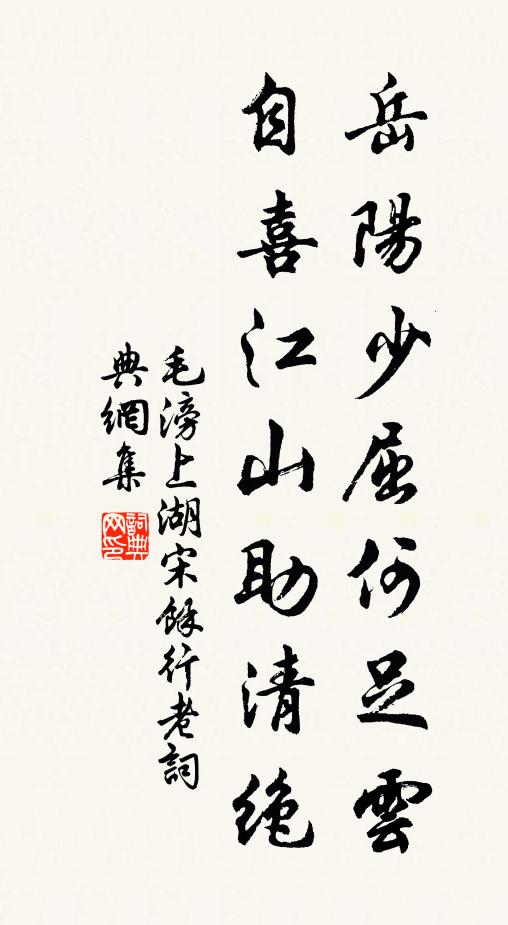 岳陽少屈何足雲
自喜江山助清絶
毛滂上湖宋餘行老詞
典網集
詞典網印